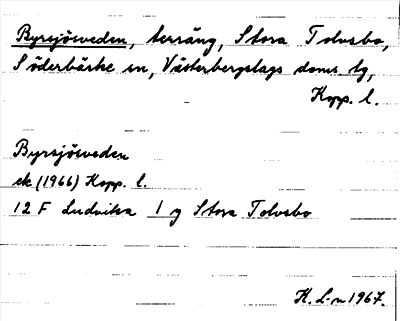 Byrsjösveden, terräng, Stora Tolvsbo,
Söderbärke sn, Västerbergslags doms tg,
Kopp. l.
Byrsjösveden
ek (1966) Kopp. l.
12 F Ludvika 1 g Stora Tolvsbo
K. L-n 1967.